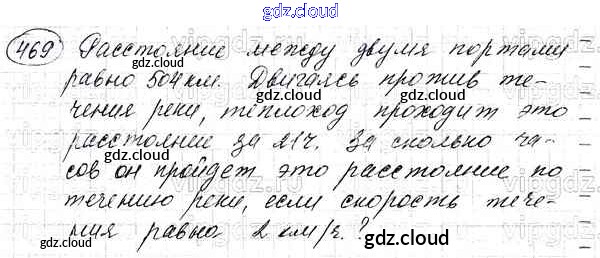 gdz.cloud
469 Расстояние между двумя портами
равно 504 км. Двигаясь против те-
чения реки, теплоход проходит это
расстояние за 21ч. За сколько ча-
сов он пройдет это расстояние по
течению реки, если скорость тече-
ния равна 2 км/ч.?